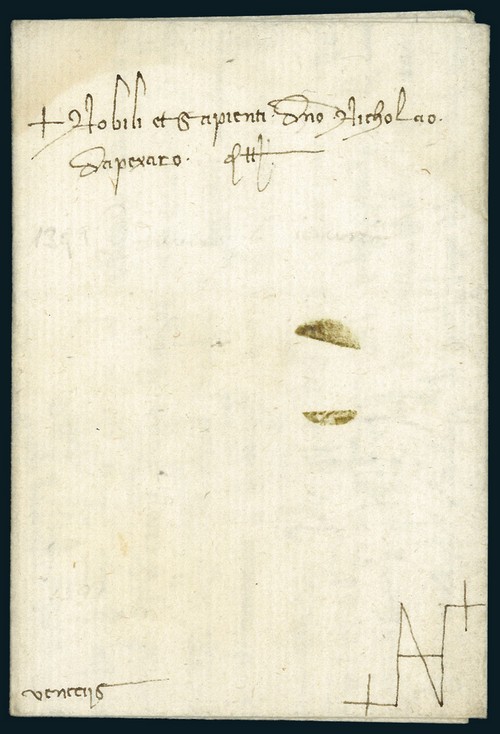 + Nobili et Sapienti dno Nicholao.
dapexaro.
1399
veneciis